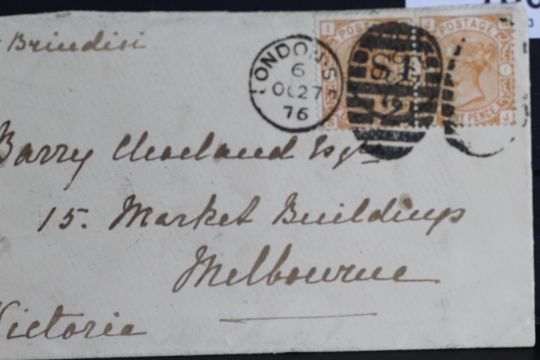 Brindisi
LONDON S
6
OC 27
76
POSTAGE
POSTAGE
PENCE
Barry Esqre
15. Market Buildings
Melbourne
Victoria